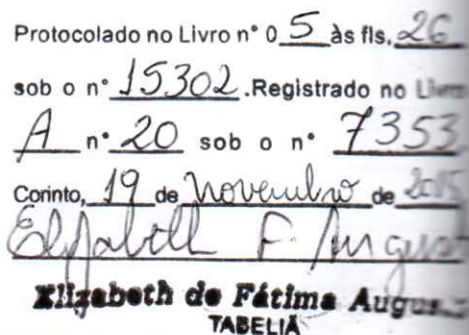 Protocolado no Livro n° 0 5 às fls. 26
sob o n° 15302 .Registrado no Livro
A n° 20 sob o n° 7353
Corinto, 19 de novembro de 2015
Elizabeth F. August
Elizabeth de Fátima Augus
TABELIÃ